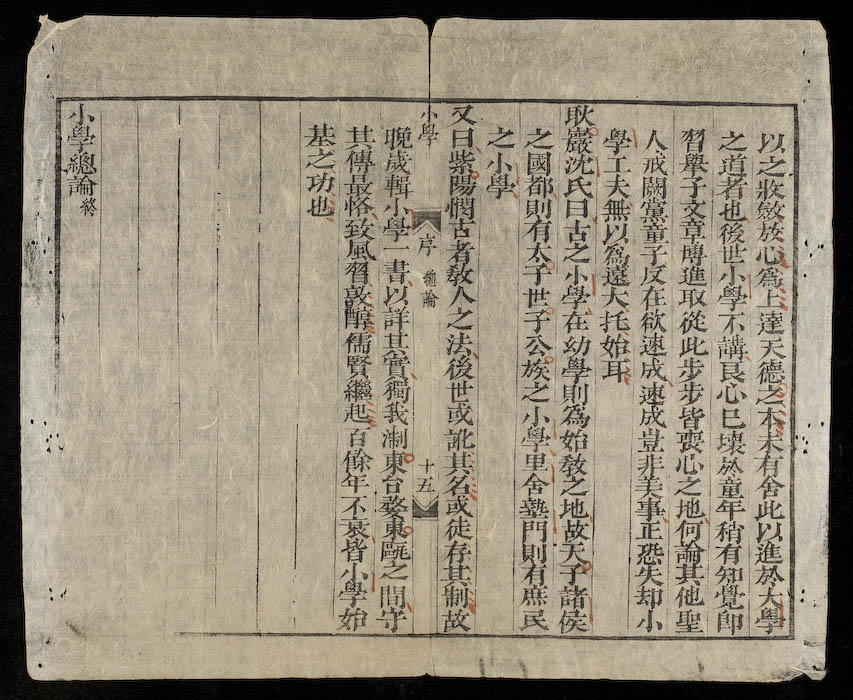 以之收斂放心為上達天德之本未有舍此以進於大學
之道者也後世小學不講良心已壞於童年稍有知覺卽
習舉子文章博進取從此步步皆喪心之地何論其他聖
人戒闕黨童子反在欲速成速成豈非美事正恐失却小
學工夫無以為遠大托始耳
耿巖沈氏曰古之小學在幼學則為始敎之地故天子諸侯
之國都則有太子世子公族之小學里舍塾門則有庶民
之小學
又曰紫陽憫古者敎人之法後世或訛其名或徒存其制故
小學 序 總論 十五
晚歲輯小學一書以詳其實獨我淛東台婺東甌之間守
其傳最恪致風習敦醇儒賢繼起百餘年不衰皆小學始
基之功也
小學總論終